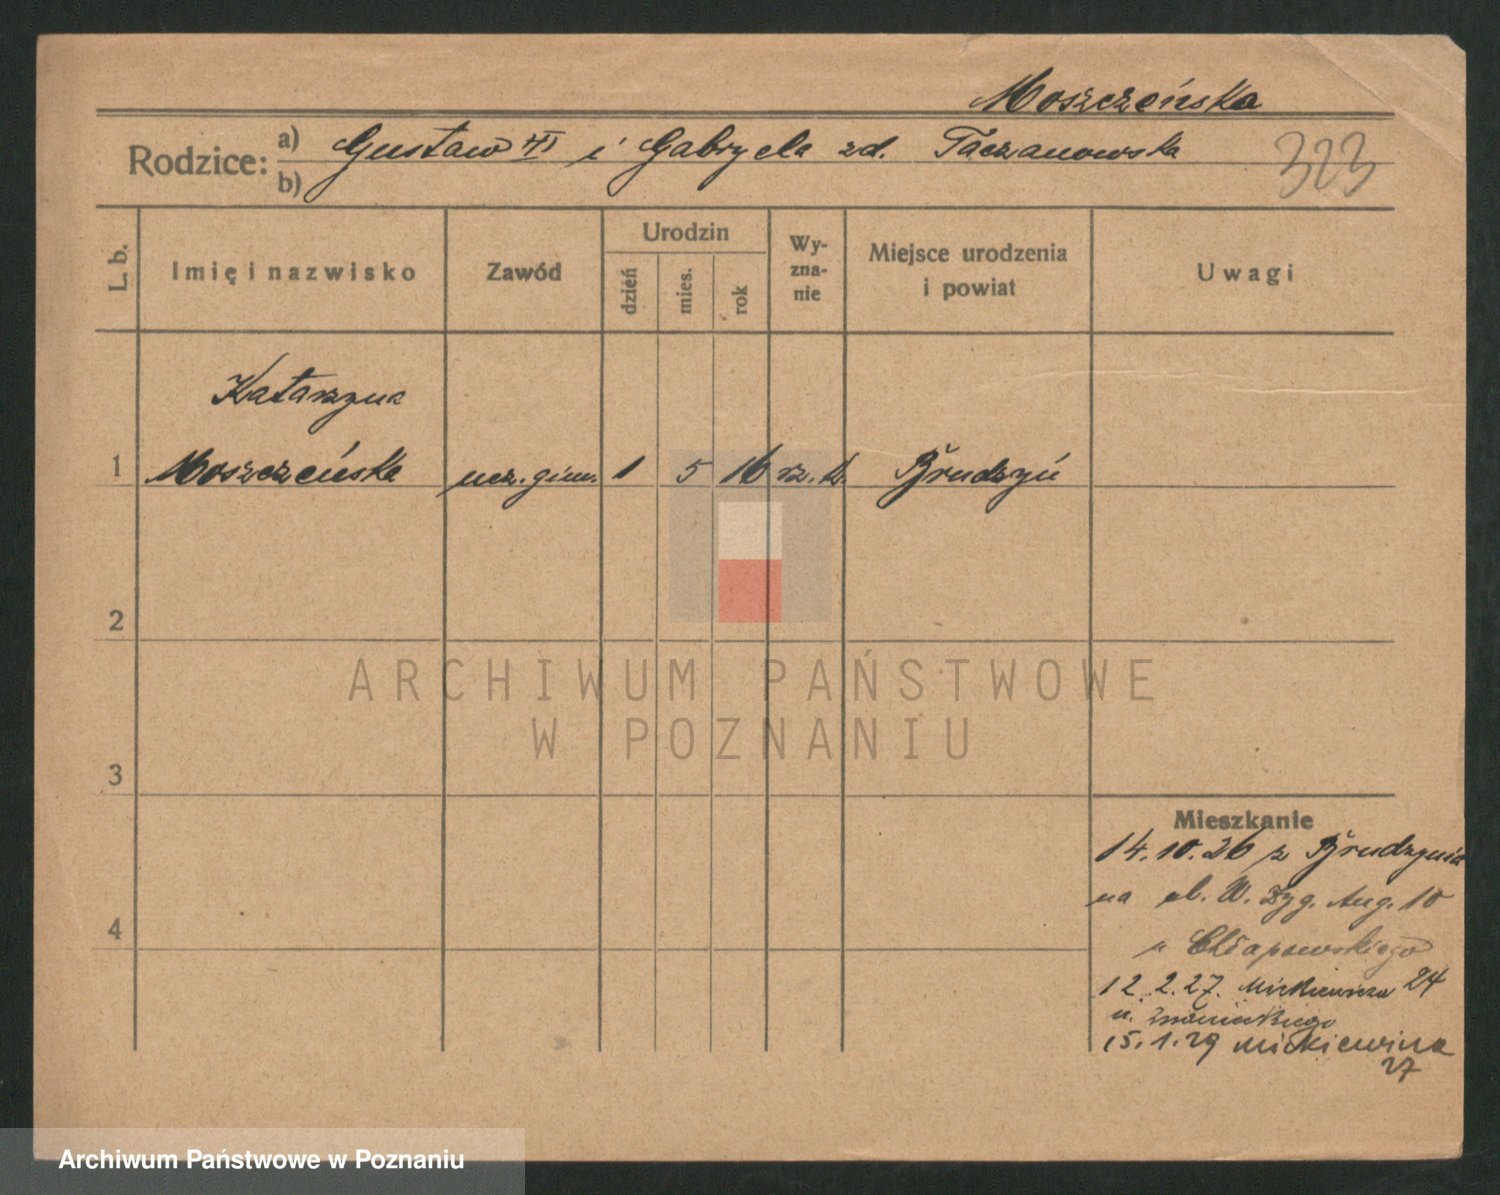 Moszczeńska
Rodzice: a) Gustaw i Gabryela zd. Taczanowska
b)
323
L. b.
Imię i nazwisko
Zawód
Urodzin
dzień
mies.
rok
Wy-
zna-
nie
Miejsce urodzenia
i powiat
Uwagi
Katarzyna
1 Moszczeńska ucz. gim. 1 5 16 rz. k. Brudzyń
2
ARCHIWUM PAŃSTWOWE
W POZNANIU
3
4
Mieszkanie
14.10.26 z Brudzynia
na ul. W. Zyg. Aug. 10
u Chłapowskiego
12.2.27. Mickiewicza 24
u. Znanieckiego
15.1.29 Mickiewicza
27
Archiwum Państwowe w Poznaniu